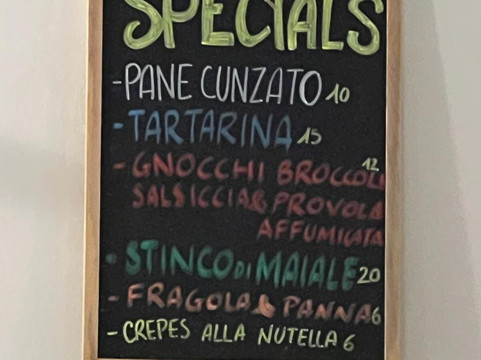 SPECIALS
-PANE CUNZATO 10
-TARTARINA 15
-GNOCCHI BROCCOLI 12
SALSICCIA & PROVOLA
AFFUMICATA
-STINCO DI MAIALE 20
-FRAGOLA & PANNA 6
-CREPES ALLA NUTELLA 6